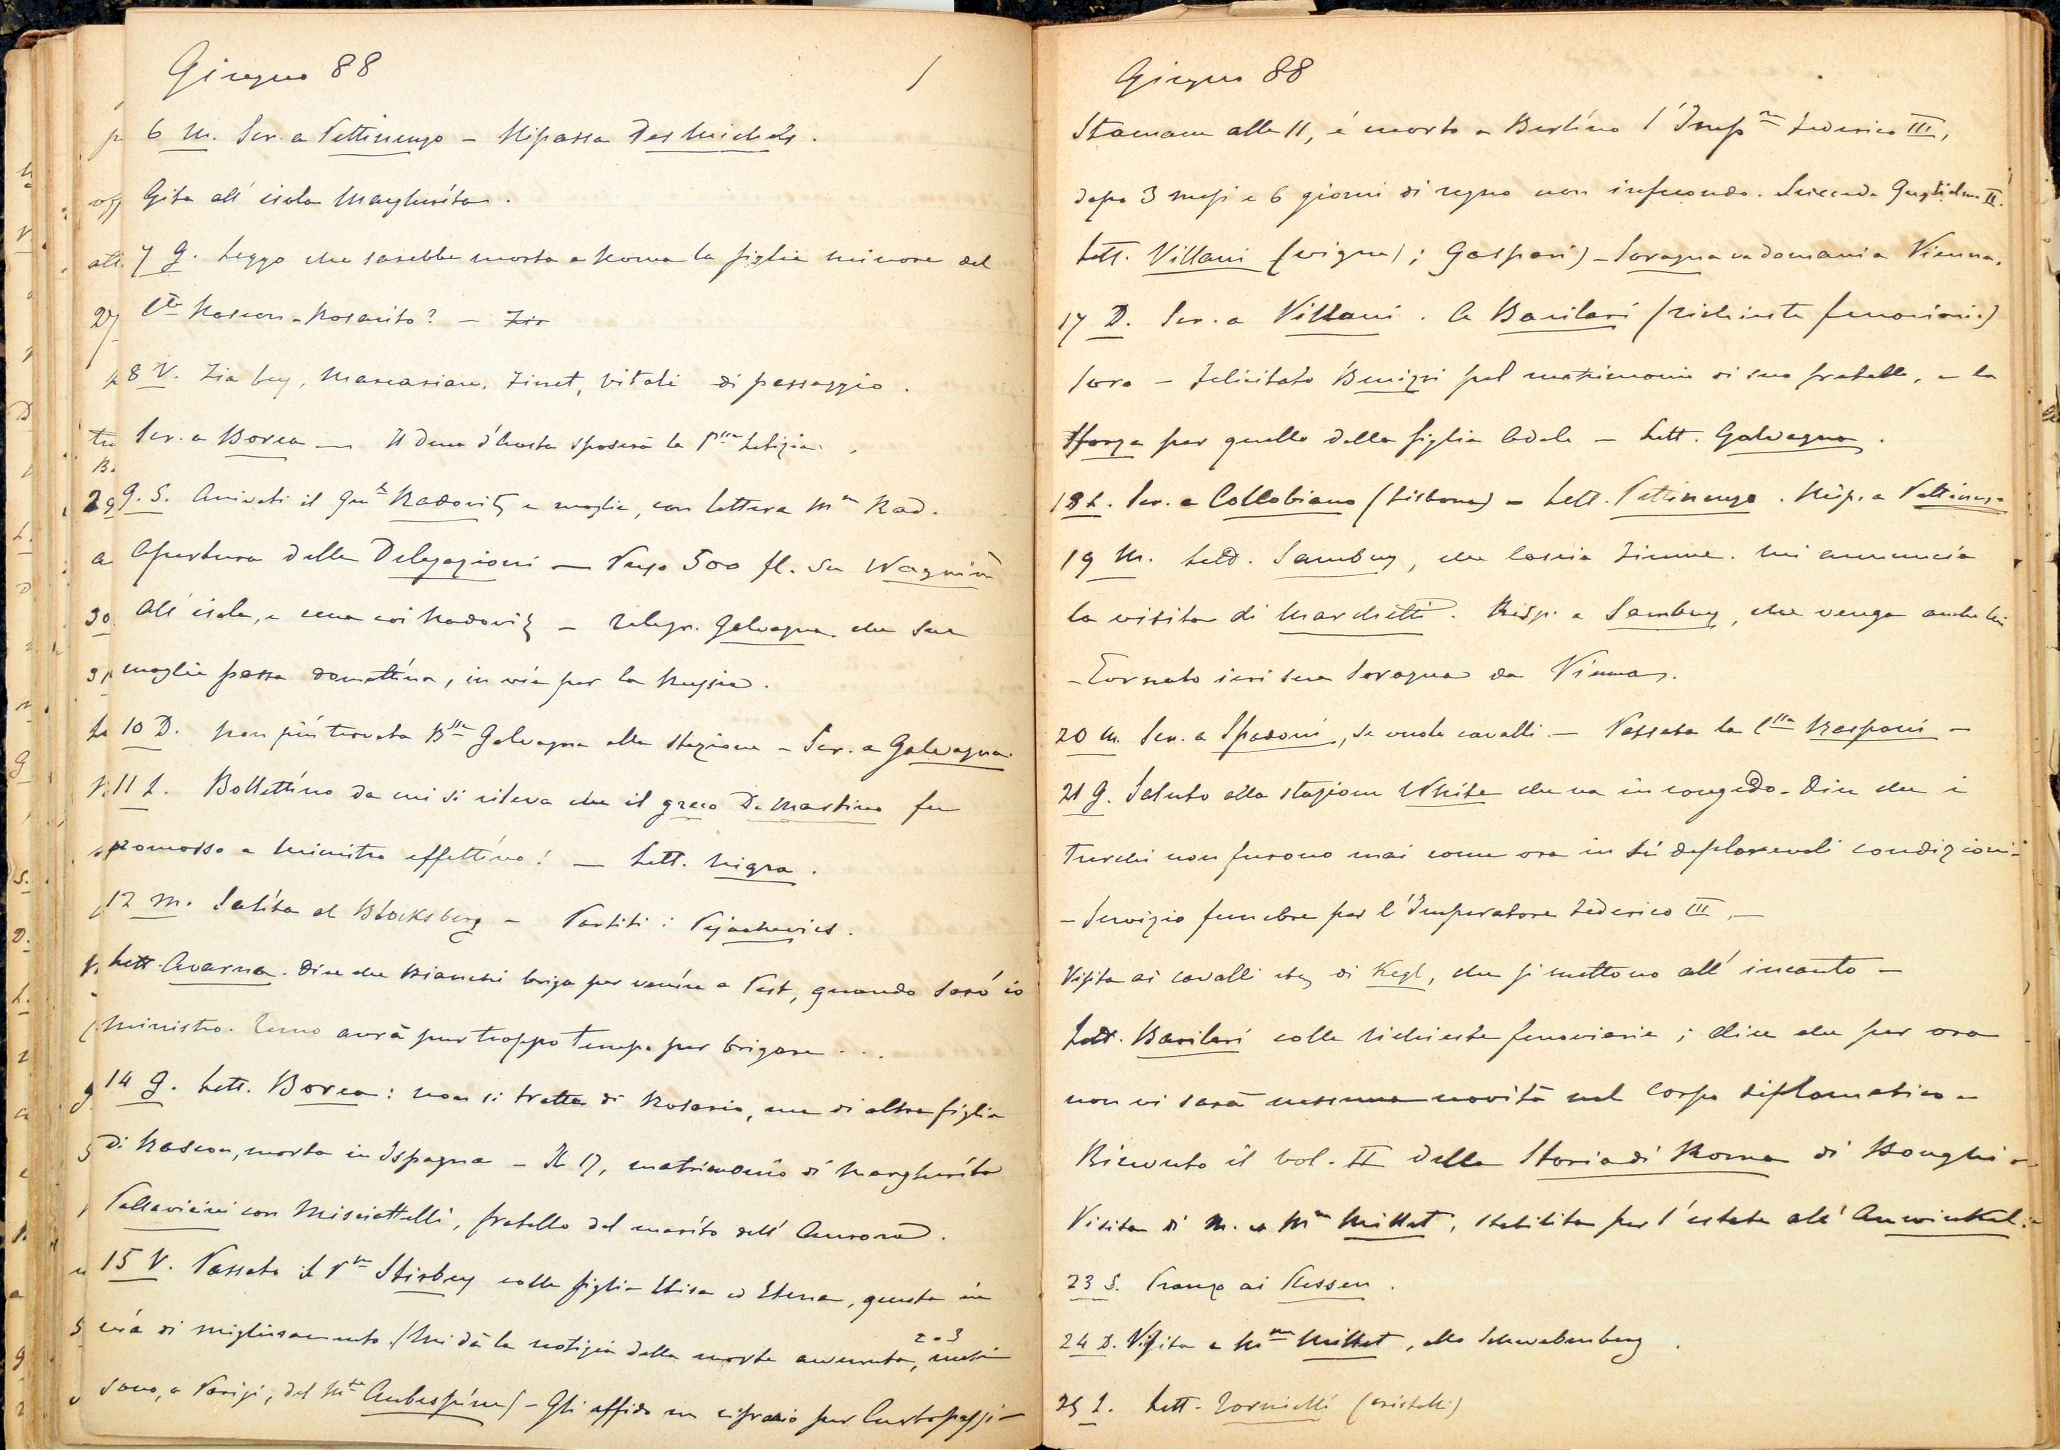 Giugno 88
6 M. Scr. a Pettinengo – Ripassa Des Michels.
Gita all' isola Margherita.
7 G. Leggo che sarebbe morta a Roma la figlia minore del
Cte Rascon – Rosarito? –
8 V. Zia bey, Marcarian, Zinet, Vitali di passaggio.
Scr. a Borea — Il Duca d'Aosta sposerà la Pssa Letizia.
9. S. Arrivati il Gnl Radovitz e moglie, con lettera Ma Rad.
Apertura delle Delegazioni — Pago 500 fl. Su
All' isola, e cena coi Radovitz – Telegr. Galvagna che sua
moglie passa domattina, in via per la Russia.
10 D. non più trovata Bssa Galvagna alla stazione – Scr. a Galvagna.
11 L. Bollettino da cui si rileva che il greco De Martino fu
promosso a Ministro effettivo! — Lett. Nigra.
12 M. Salita al Blocksberg – Partiti i Pejachevics.
Lett. Avarna. Dice che Bianchi briga per venire a Pest, quando sarò io
Ministro. Temo avrà pur troppo tempo per brigare . . .
14 G. Lett. Borea: non si tratta di Rosario, ma di altra figlia
di Rascon, morta in Ispagna – Il 17, matrimonio di Margherita
Pallavicini con Misciattelli, fratello del marito dell' Aurora.
15 V. Passato il Pce Stirbey colle figlie Elisa ed Elena, questa in
via di miglioramento. (Mi dà la notizia della morte avvenuta, 2 o 3 mesi
sono, a Parigi, del Mse Aubespine) – Gli affido un cifrario per Curtopassi –
Giugno 88
Stamane alle 11, è morto a Berlino l'Impre Federico III,
dopo 3 mesi e 6 giorni di regno non infecondo. Succede Guglielmo II.
Lett. Villani (vigna); Gaspari) – Soragna va domani a Vienna.
17 D. Scr. a Villani. A Basilari (richieste ferroviarie)
Sera – Felicitato Benizi pel matrimonio di suo fratello, e la
Sforza per quello della figlia Adele – Lett. Galvagna.
18 L. Scr. a Collobiano (Lisbona) – Lett. Pettinengo. Risp. a Pettinengo
19 M. Lett. Sambuy, che lascia Fiume. Mi annuncia
la visita di Marchetti. Risp. a Sambuy, che venga anche lui
– Tornato ieri sera Soragna da Vienna.
20 M. Scr. a Spadoni, se vuole cavalli. — Passata la Cssa Rasponi –
21 G. Saluto alla stazione White che va in congedo. Dice che i
Turchi non furono mai come ora in sì deplorevoli condizioni –
– Servizio funebre per l'Imperatore Federico III. —
Visita ai cavalli di Kegl, che si mettono all' incanto –
Lett. Basilari colle richieste ferroviarie; dice che per ora
non vi sarà nessuna novità nel Corpo diplomatico –
Ricevuto il vol. II della Storia di Roma di Bonghi –
Visita di M. e Ma Millet, stabilita per l'estate all' Auwinkel.
23 S. Pranzo ai
24 D. Visita a Mme Millet, allo Schwabenberg.
25 L. Lett. Tornielli